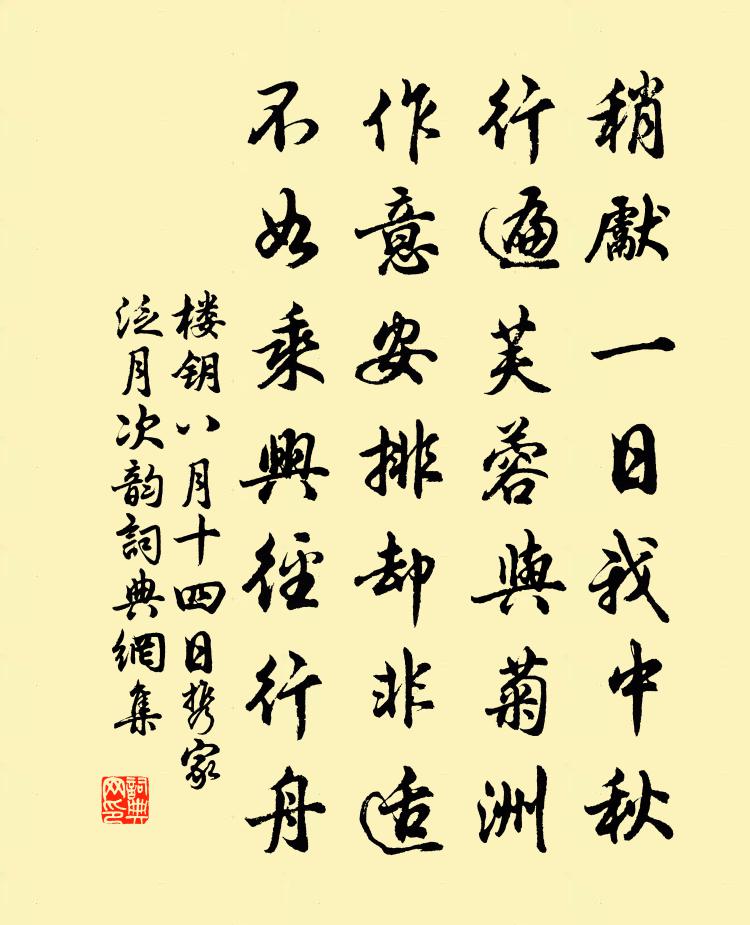 稍獻一日我中秋
行遍芙蓉與菊洲
作意安排却非适
不如乘興徑行舟
楼钥八月十四日携家
泛月次韵詞典網集
詞典网印